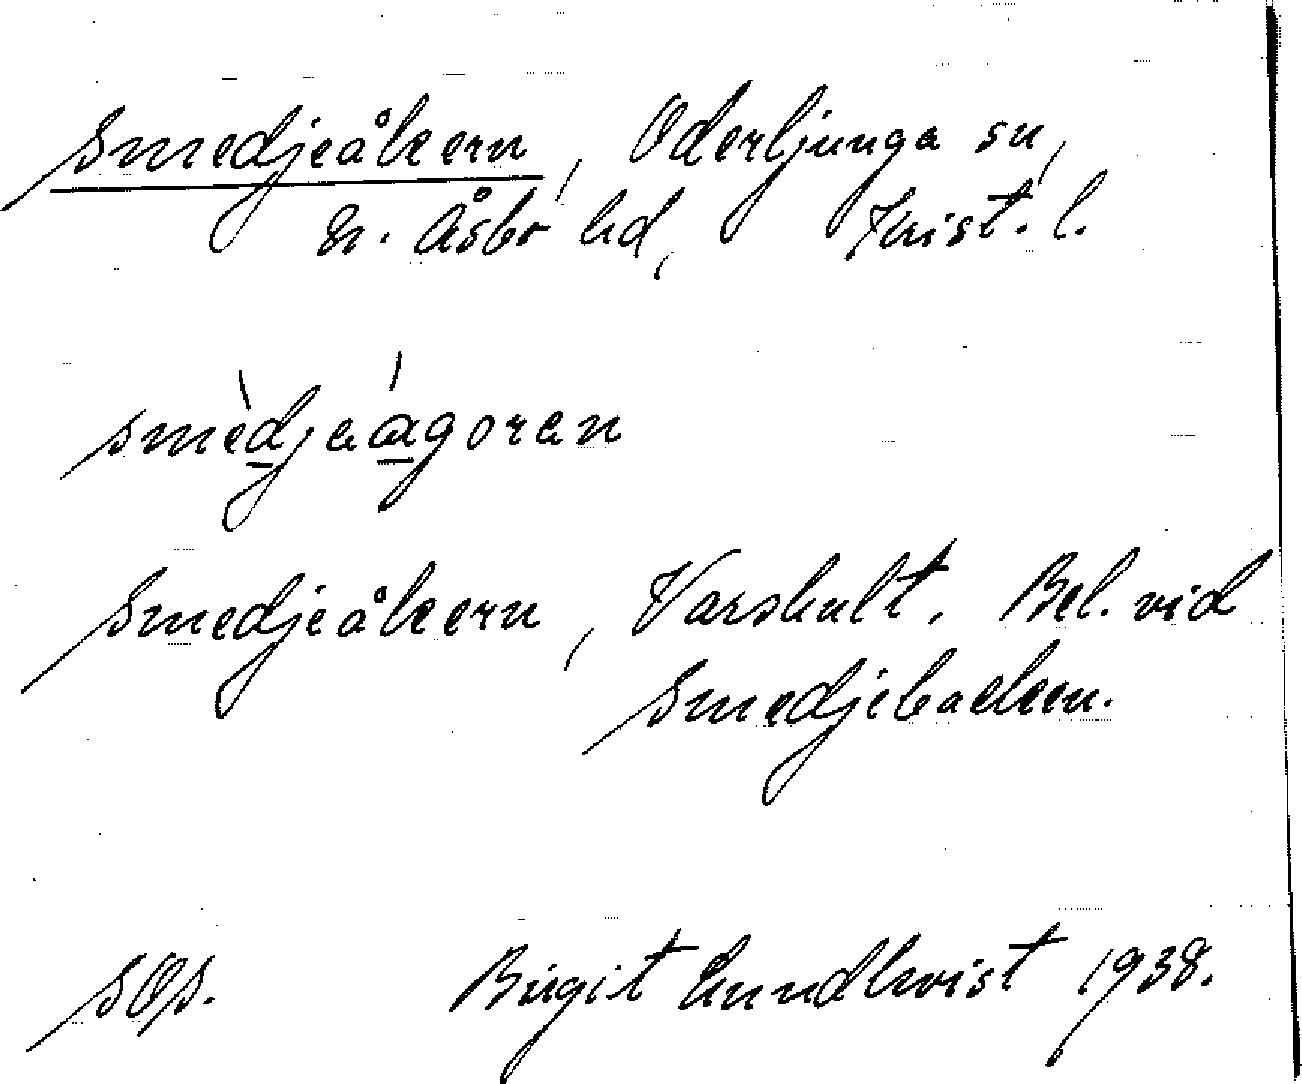 Smedjeåkern, Oderljunga sn,
N. Åsbo hd, Krist. l.
smèdjaágoran
Smedjeåkern, Varshult. Bel. vid
Smedjebacken.
sOs. Birgit Lundkvist 1938.